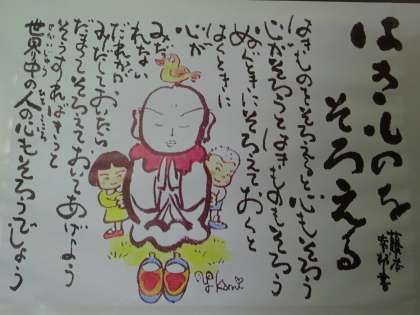 はきものを
そろえる
はきものをそろえると心もそろう
心がそろうとはきものもそろう
ぬぐときにそろえておくと
はくときに
心が
みだ
れない
だれかが
みだしておいたら
だまってそろえておいてあげよう
そうすればきっと
世界中の人の心もそろうでしょう